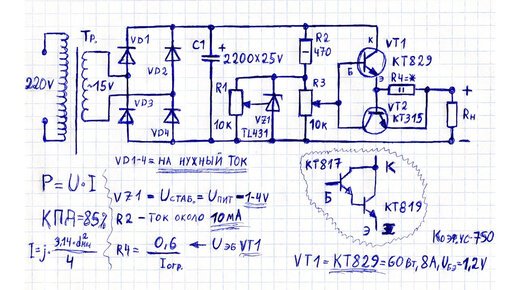 Тр.
220V
~15V
VD1
VD2
VD3
VD4
C1
+
2200x25V
R1
10K
VZ1
TL431
R2
470
R3
10K
К
Б
Э
VT1
КТ829
R4=*
VT2
КТ315
+
Rн
-
VD1-4 = НА НУЖНЫЙ ТОК
P = U · I
КПД = 85%
I = j · 3.14 · d² / 4
VZ1 = Uстаб. = Uпит = 1-4V
R2 - ТОК ОКОЛО 10 МА
R4 = 0,6 / Iогр. ← Uэб VT1
КТ817
К
Б
КТ819
Э
КОЭФ. УС-750
VT1 = КТ829 = 60 Вт, 8А, Uбэ = 1,2V